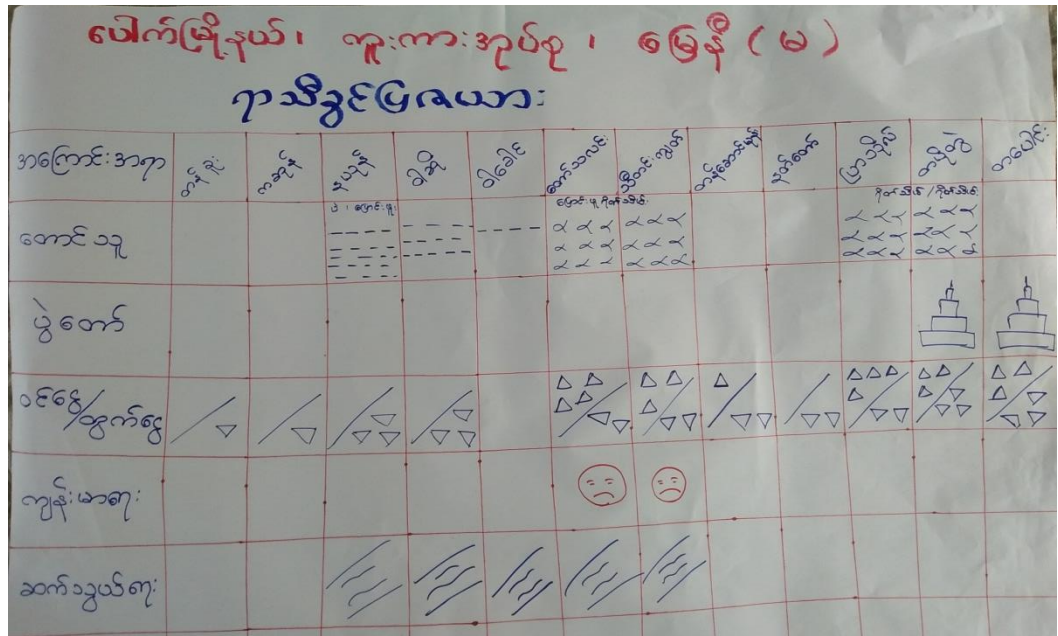 ပေါက်မြို့နယ်၊ ကူးကားအုပ်စု ၊ မြေနီ (မ)
ရာသီခွင်ပြဇယား
အကြောင်းအရာ တန်ခူး ကဆုန် နယုန် ဝါဆို ဝါခေါင် တော်သလင်း သီတင်းကျွတ် တန်ဆောင်မုန်း နတ်တော် ပြာသို တပို့တွဲ တပေါင်း
တောင်သူ
ပွဲတော်
ဝင်ငွေ/ထွက်ငွေ
ကျန်းမာရေး
ဆက်သွယ်ရေး